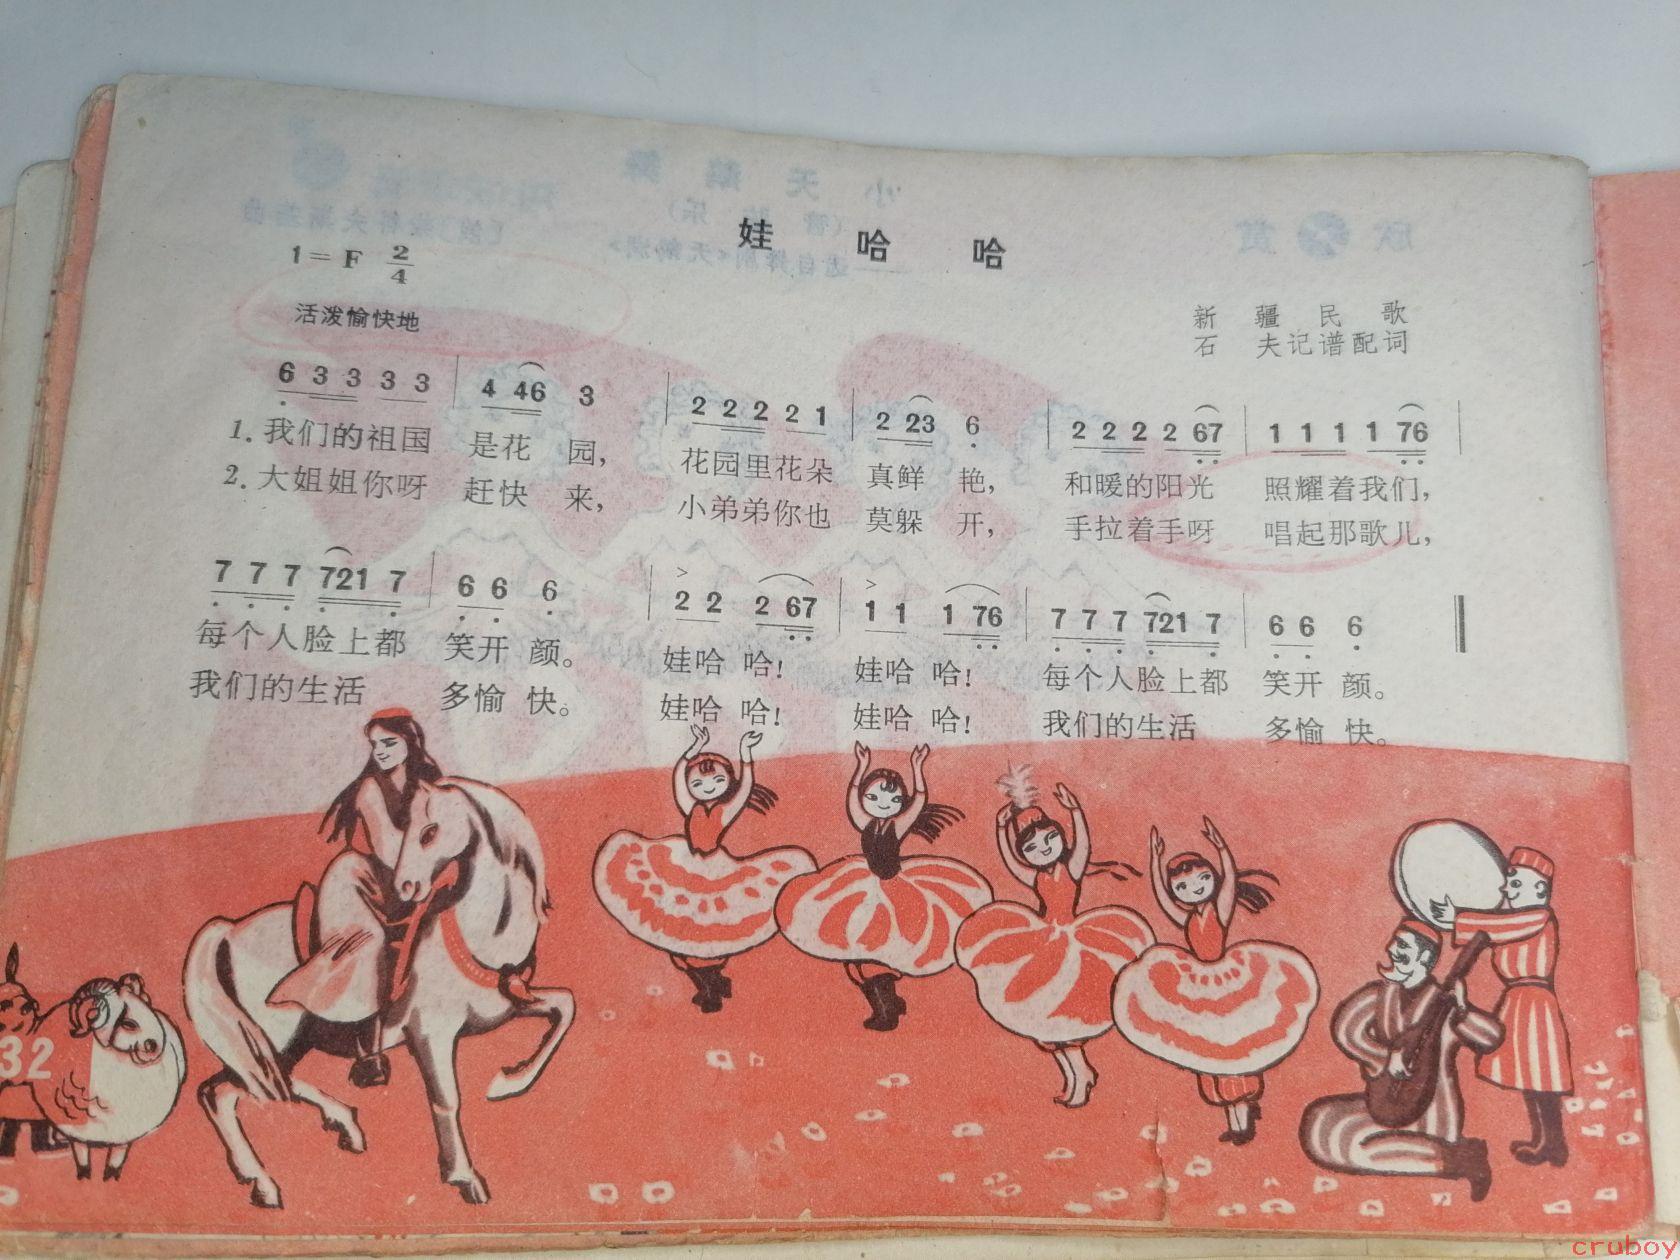 娃哈哈
1=F 2/4
活泼愉快地
新疆民歌
石夫记谱配词
6 3 3 3 3 | 4 46 3 | 2 2 2 2 1 | 2 23 6 | 2 2 2 2 67 | 1 1 1 1 76 |
1. 我们的祖国 是花 园, 花园里花朵 真鲜 艳, 和暖的阳光 照耀着我们,
2. 大姐姐你呀 赶快 来, 小弟弟你也 莫躲 开, 手拉着手呀 唱起那歌儿,
7 7 7 721 7 | 6 6 6 | 2 2 2 67 | 1 1 1 76 | 7 7 7 721 7 | 6 6 6 ‖
每个人脸上都 笑开 颜。 娃哈 哈! 娃哈 哈! 每个人脸上都 笑开 颜。
我们的生活 多愉 快。 娃哈 哈! 娃哈 哈! 我们的生活 多愉 快。
32
cruboy